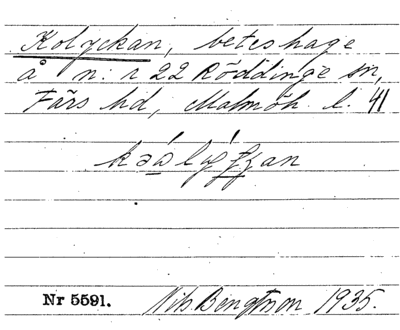 Kolyckan, beteshage
å n: r 22 Röddinge sn,
Färs hd, Malmöh. l. 41
Nr 5591. Nils Bengtsson 1935.